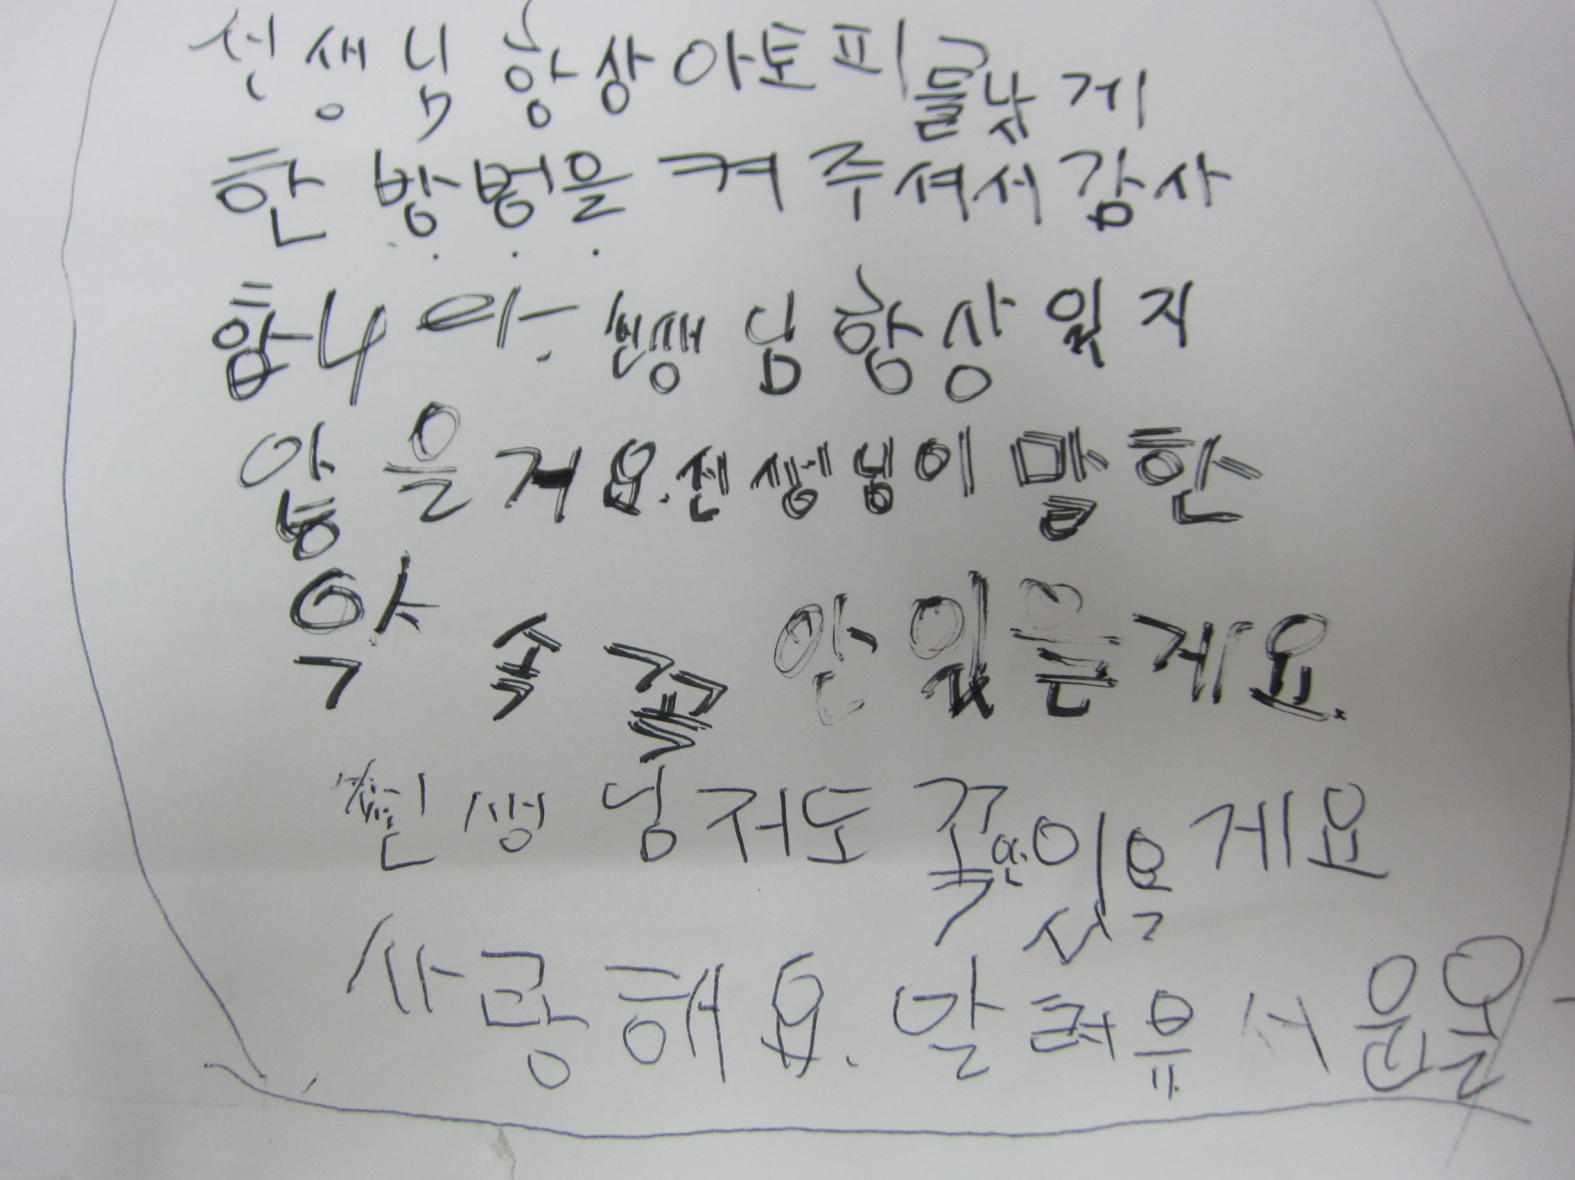 선생님 항상 아토피를 낮게
한 방법을 켜 주셔서 감사
합니다. 선생님 항상 잊지
않을거요. 선생님이 말한
약속 꼭 안 잊을게요.
선생님 저도 꼭 안 잊을게요
사랑해요.